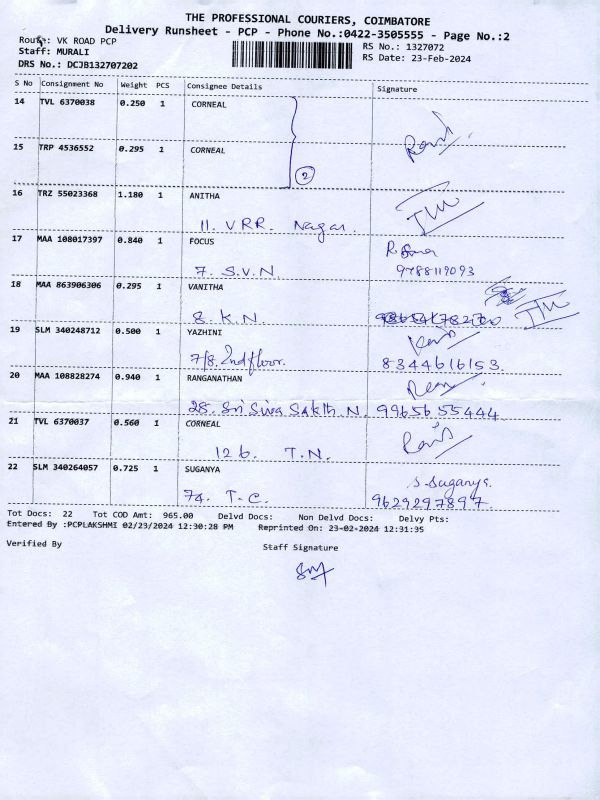 THE PROFESSIONAL COURIERS, COIMBATORE
Delivery Runsheet - PCP - Phone No.:0422-3505555 - Page No.:2
Route: VK ROAD PCP
RS No.: 1327072
Staff: MURALI
RS Date: 23-Feb-2024
DRS No.: DCJB132707202
S No Consignment No Weight PCS Consignee Details Signature
14 TVL 6370038 0.250 1 CORNEAL
15 TRP 4536552 0.295 1 CORNEAL
2
16 TRZ 55023368 1.180 1 ANITHA
11. V RR. Nagar.
17 MAA 108017397 0.840 1 FOCUS
7. S.V.N. 9788119093
18 MAA 863906306 0.295 1 VANITHA
8. K.N.
19 SLM 340248712 0.500 1 YAZHINI
7/8. 2nd floor. 8344616153.
20 MAA 108828274 0.940 1 RANGANATHAN
28. Sri Siva Sakth N. 9965655444
21 TVL 6370037 0.560 1 CORNEAL
126. T.N.
22 SLM 340264057 0.725 1 SUGANYA
S. Suganya.
74. T.C. 9629297897.
Tot Docs: 22 Tot COD Amt: 965.00 Delvd Docs: Non Delvd Docs: Delvy Pts:
Entered By :PCPLAKSHMI 02/23/2024 12:30:28 PM Reprinted On: 23-02-2024 12:31:35
Verified By Staff Signature